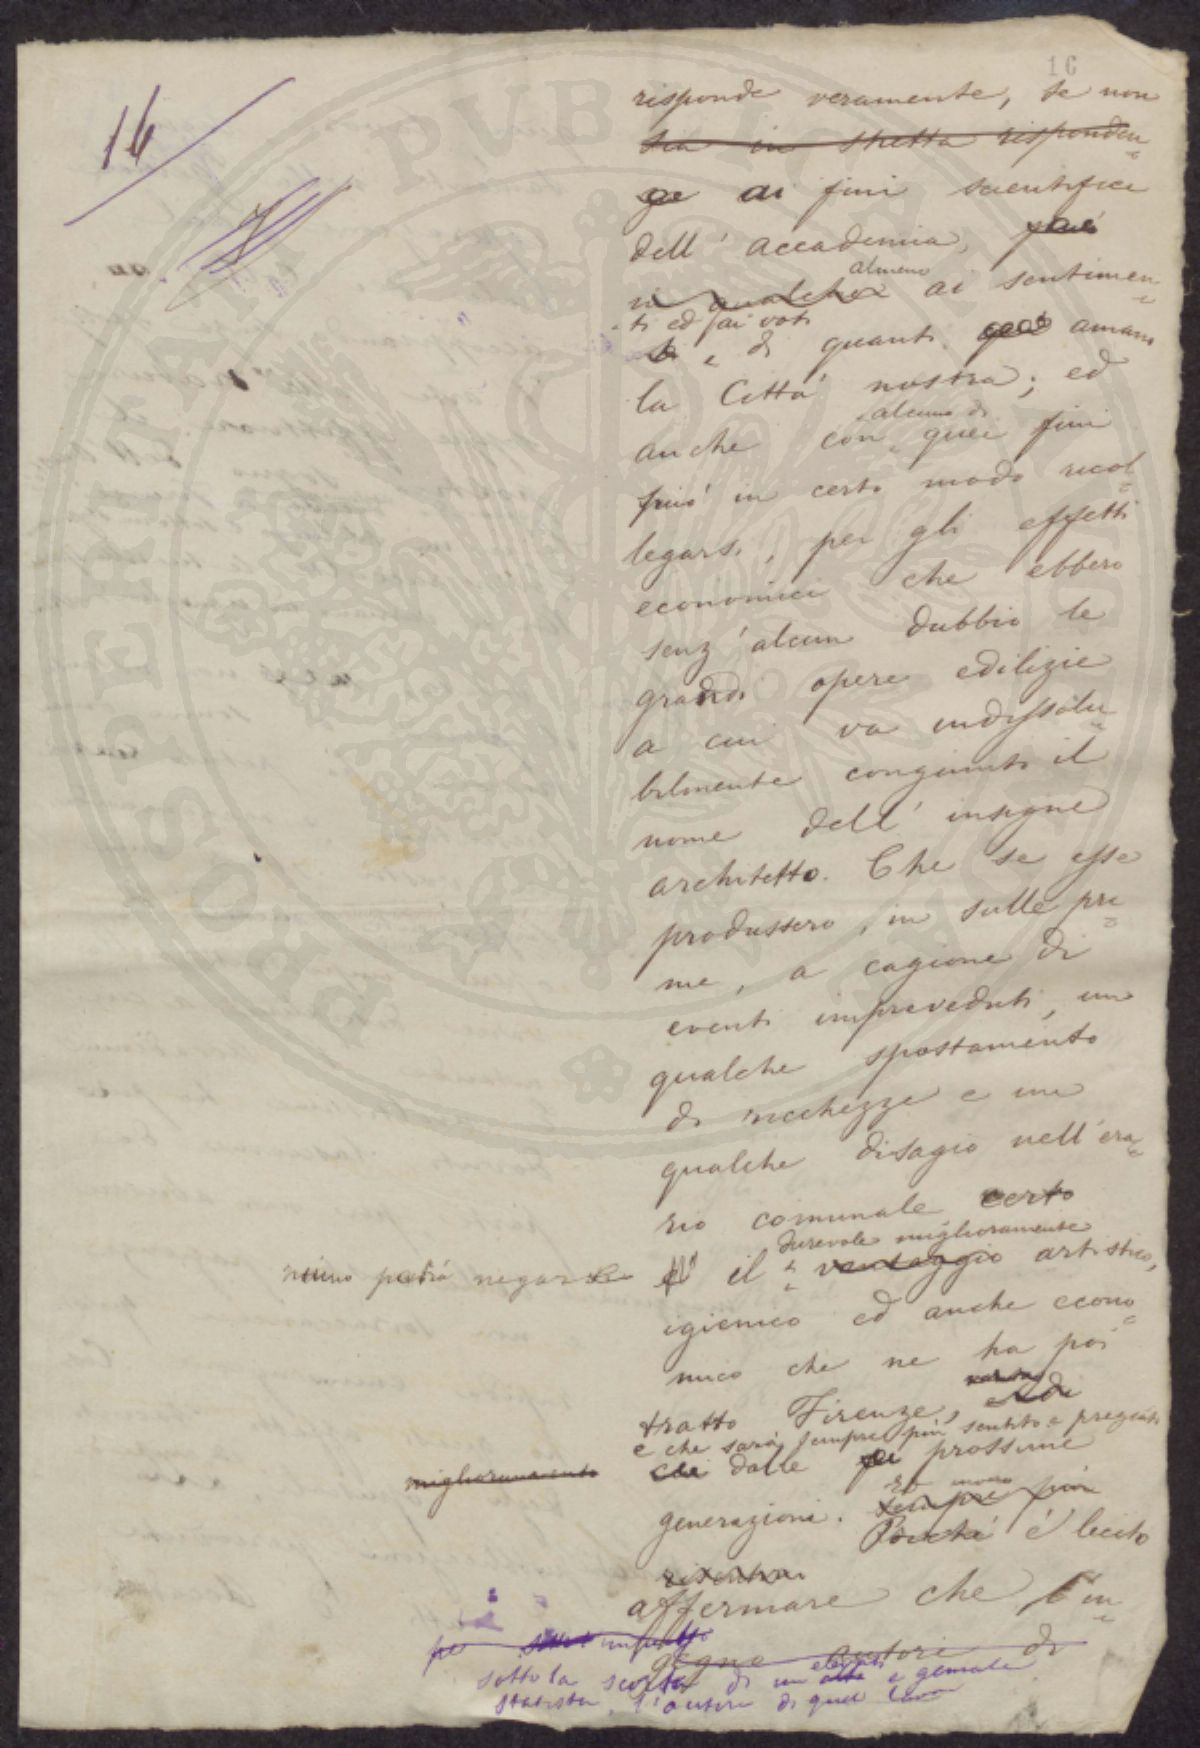 16
16
risponde veramente, se non
sia in stretta risponden
ze ai fini scientifici
dell'accademia, può
almeno
in qualche ai sentimen
ti ed ai voti
di quanti amano
la Città nostra; ed
alcuno di
anche con quei fini
può in certo modo ricol
legarsi, per gli effetti
economici che ebbero
senz'alcun dubbio le
grandi opere edilizie
a cui va indissolu
bilmente congiunto il
nome dell'insigne
architetto. Che se esse
produssero, in sulle pri
me, a cagione di
eventi impreveduti, un
qualche spostamento
di ricchezze e un
qualche disagio nell'era
rio comunale certo
durevole miglioramento
niuno potrà negare il vantaggio artistico,
igienico ed anche econo
mico che ne ha poi
tratto Firenze,
e che sarà sempre più sentito e pregiato
miglioramento dalle prossime
generazioni. sempre più
Poiché é lecito
affermare che l'in
gegno autore di
sotto la scorta di un alto e geniale
elevato
statista, l'autore di quei lavori
PROSPERITATI PVBLICAE AVGENDAE